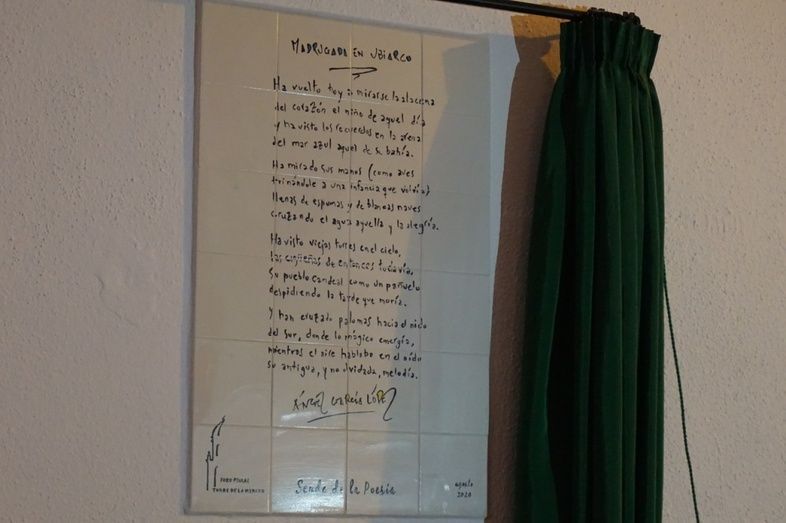 MADRUGADA EN UBIARCO
Ha vuelto hoy a mirarse la alacena
del corazón el niño de aquel día
y ha visto los recuerdos en la arena
del mar azul aquel de su bahía.
Ha mirado sus manos (como aves
trinándole a una infancia que volvía)
llenas de espumas y de blancas naves
cruzando el agua aquella y la alegría.
Ha visto viejas torres en el cielo,
las cigüeñas de entonces todavía,
su pueblo candeal como un pañuelo
despidiendo la tarde que moría.
Y han cruzado palomas hacia el nido
del sur, donde lo mágico emergía,
mientras el aire hablaba en el oído
su antigua, y no olvidada, melodía.
ÁNGEL GARCÍA LÓPEZ
FORO PLURAL
TORRE DE LA MERCED
Senda de la Poesía
agosto
2020